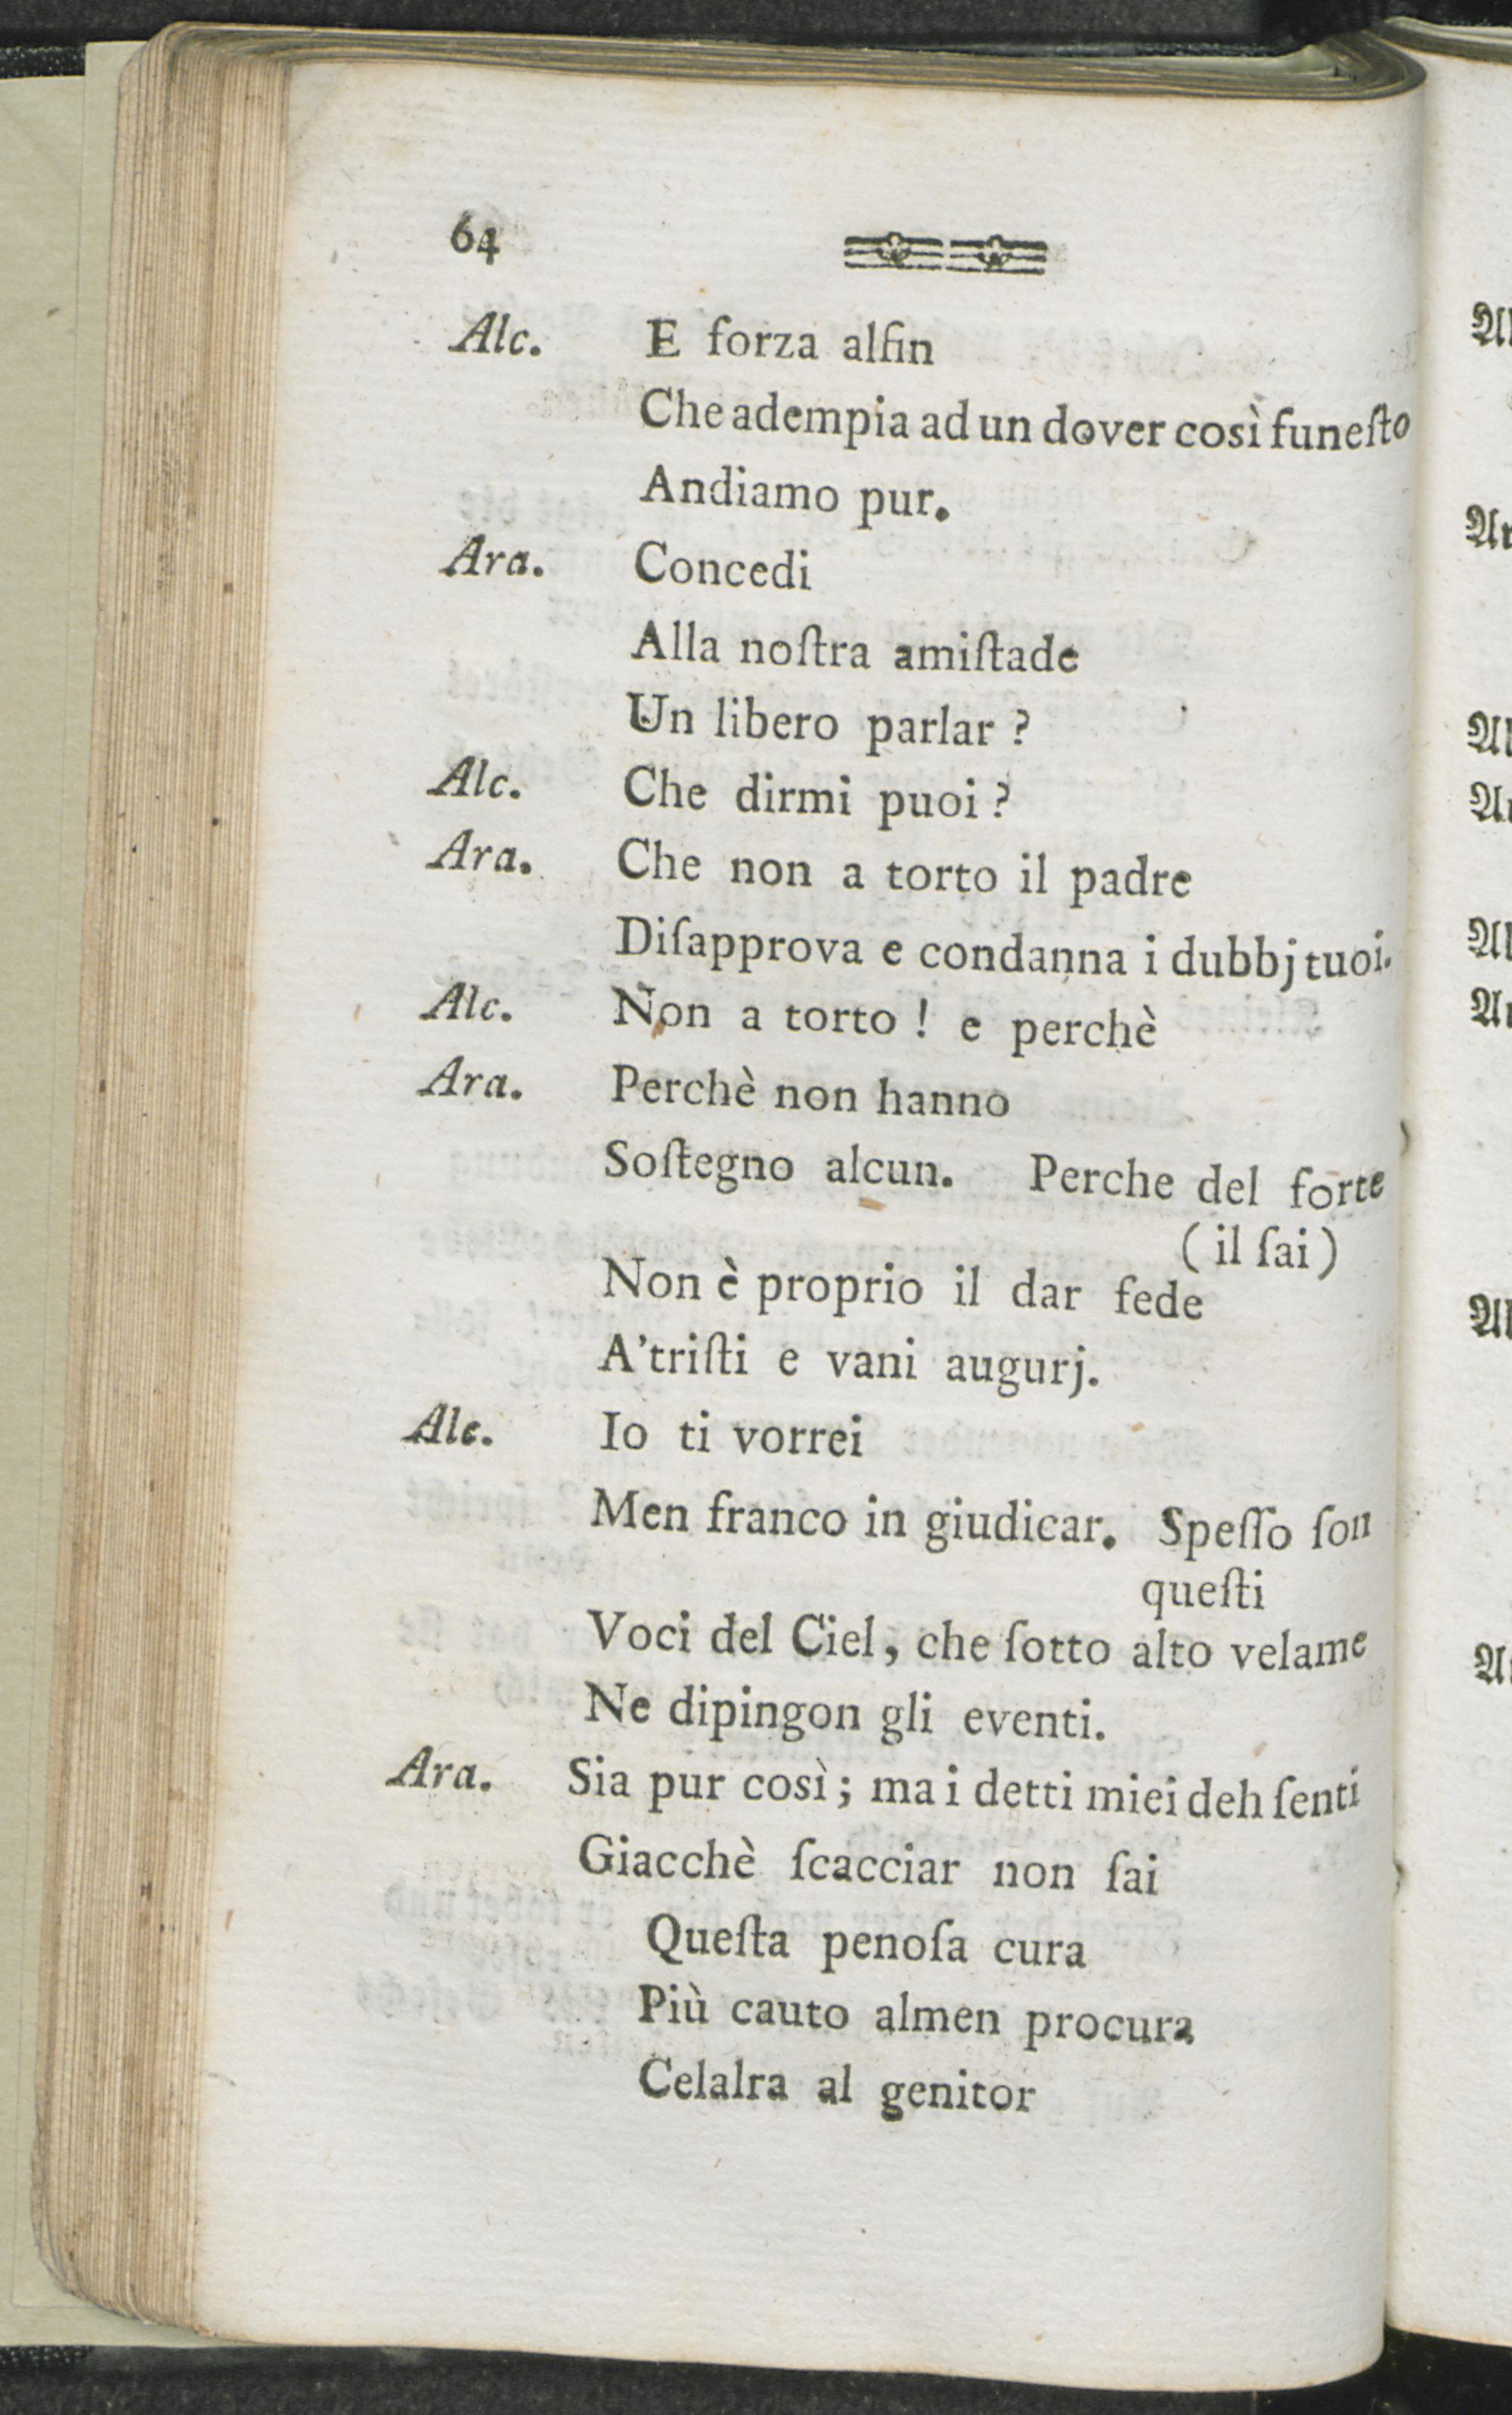 64
Alc. E forza alfin
Che adempia ad un dover così funeſto
Andiamo pur.
Ara. Concedi
Alla noſtra amiſtade
Un libero parlar ?
Alc. Che dirmi puoi ?
Ara. Che non a torto il padre
Diſapprova e condanna i dubbj tuoi.
Alc. Non a torto ! e perchè
Ara. Perchè non hanno
Soſtegno alcun. Perche del forte
( il ſai )
Non è proprio il dar fede
A'triſti e vani augurj.
Alc. Io ti vorrei
Men franco in giudicar. Speſſo ſon
queſti
Voci del Ciel, che ſotto alto velame
Ne dipingon gli eventi.
Ara. Sia pur così ; ma i detti miei deh ſenti
Giacchè ſcacciar non ſai
Queſta penoſa cura
Più cauto almen procura
Celalra al genitor
Al
Ar
Al
Ar
Al
Ar
Al
Ar